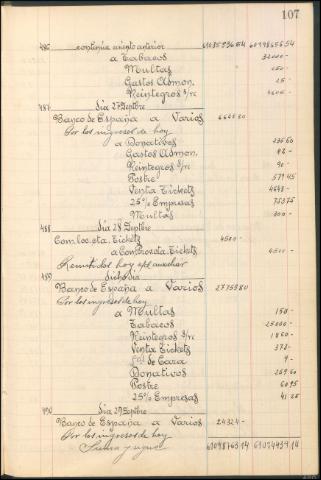 107
486 continúa asiento anterior 61035936 54 60998656 54
a Tabacos 32000 -
Multas
Gastos Admon. 25 -
Reintegros s/r
487 día 27 Septbre
Banco de España a Varios
Por los ingresos de hoy
a Donativos
Gastos Admon.
Reintegros s/r 90 -
Postre 579 45
Venta Tickets
25% Empresas 753 75
Multas 300 -
488 día 28 Septbre
Com. loc. cta. Tickets 4500 -
a Contrav. cta. Tickets 4500 -
Remitidos hoy
489 dicho día
Banco de España a Varios 27759 80
Por los ingresos de hoy
a Multas 150 -
Tabacos 25000 -
Reintegros s/r 1860 -
Venta Tickets 373 -
de Caza 9 -
Donativos
Postre 60 95
25% Empresas 41 25
490 día 29 Septbre
Banco de España a Varios 24324 -
Por los ingresos de hoy
Suma y sigue 61098763 14 61074439 14